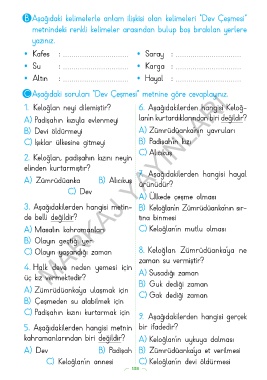 B Aşağıdaki kelimelerle anlam ilişkisi olan kelimeleri "Dev Çeşmesi"
metnindeki renkli kelimeler arasından bulup boş bırakılan yerlere
yazınız.
• Kafes : ..............................
• Su : ..............................
• Altın : ..............................
• Saray : ..............................
• Karga : ..............................
• Hayal : ..............................
C Aşağıdaki soruları "Dev Çeşmesi" metnine göre cevaplayınız.
1. Keloğlan neyi dilemiştir?
A) Padişahın kızıyla evlenmeyi
B) Devi öldürmeyi
C) Işıklar ülkesine gitmeyi
2. Keloğlan, padişahın kızını neyin
elinden kurtarmıştır?
A) Zümrüdüanka B) Alıcıkuş
C) Dev
3. Aşağıdakilerden hangisi metin-
de belli değildir?
A) Masalın kahramanları
B) Olayın geçtiği yer
C) Olayın yaşandığı zaman
4. Halk deve neden yemesi için
üç kız vermektedir?
A) Zümrüdüanka'ya ulaşmak için
B) Çeşmeden su alabilmek için
C) Padişahın kızını kurtarmak için
5. Aşağıdakilerden hangisi metnin
kahramanlarından biri değildir?
A) Dev B) Padişah
C) Keloğlan'ın annesi
6. Aşağıdakilerden hangisi Keloğ-
lan'ın kurtardıklarından biri değildir?
A) Zümrüdüanka'nın yavruları
B) Padişahın kızı
C) Alıcıkuş
7. Aşağıdakilerden hangisi hayal
ürünüdür?
A) Ülkede çeşme olması
B) Keloğlan'ın Zümrüdüanka'nın sır-
tına binmesi
C) Keloğlan'ın mutlu olması
8. Keloğlan Zümrüdüanka'ya ne
zaman su vermiştir?
A) Susadığı zaman
B) Guk dediği zaman
C) Gak dediği zaman
9. Aşağıdakilerden hangisi gerçek
bir ifadedir?
A) Keloğlan'ın uykuya dalması
B) Zümrüdüanka'ya et verilmesi
C) Keloğlan'ın devi öldürmesi